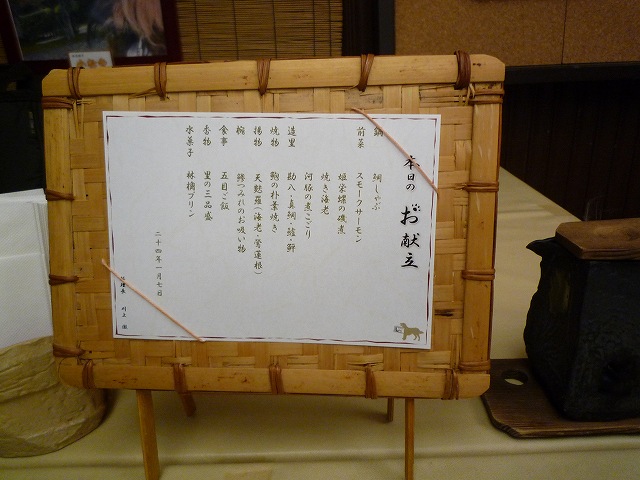 本日の お献立
鍋 鯛しゃぶ
前菜 スモークサーモン
姫栄螺の磯煮
焼き海老
河豚の煮こごり
造里 勘八・真鯛・鮪・鮃
焼物 鮑の朴葉焼き
揚物 天麩羅(海老・甘藷・蓮根)
椀 鰺つみれのお吸い物
食事 五目ご飯
香物 里の三品盛
水菓子 林檎プリン
二十四年一月七日